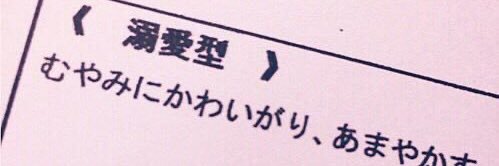 《 溺愛型 》
むやみにかわいがり、あまやかす